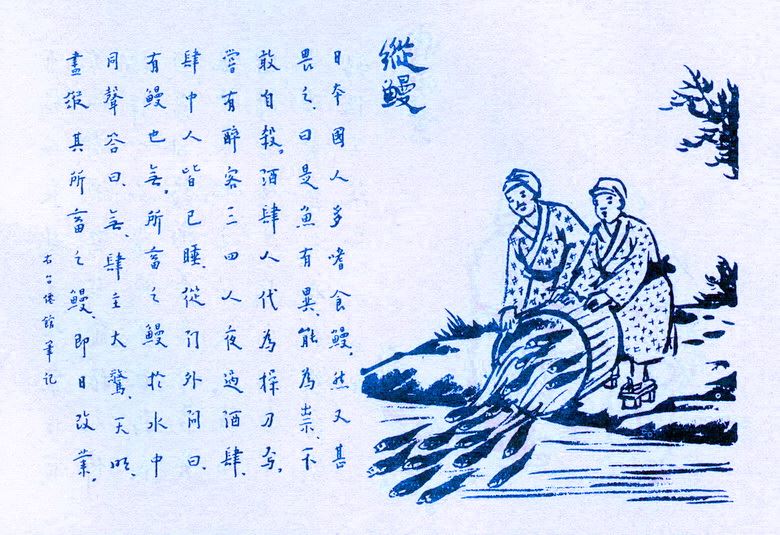 縱鰻
日本國人多嗜食鰻、然又甚
畏之、曰是魚有異、能為祟、不
敢自殺。酒肆人代為操刀焉。
嘗有醉客三四人夜過酒肆、
肆中人皆已睡、從門外問曰、
有鰻也無。所畜之鰻於水中
同聲答曰、無、肆主大驚、天明、
盡縱其所畜之鰻、即日改業。
右台僊館筆記